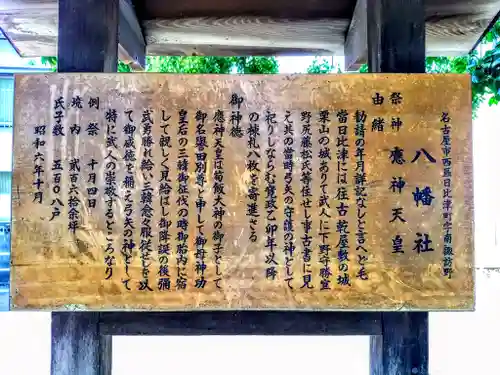 名古屋市西区日比津町字南諏訪野
八幡社
祭神 應神天皇
由緒
勧請の年月詳記なしと言へども
當日比津には往古乾屋敷の城
栗山の城ありて武人に下野守勝宣
野尻藤松氏等住せし事古書に見
え其の當時弓矢の守護の神として
祀りしならむ寛政乙卯年以降
の棟札八枚を寄進せる
御神徳
應神天皇は筍飯大神の御子として
御名譽田別尊と申して御母神功
皇后の三韓御征伐の時御胎内に宿
して親しく見給はし御降誕の後彌
武勇勝れ給い三韓悉く服従せしを以
て御威徳を稱え弓矢の神として
特に武人の崇敬するところなり
例祭 十月四日
境内 貳百六十余坪
氏子数 五百〇八戸
昭和六年十月